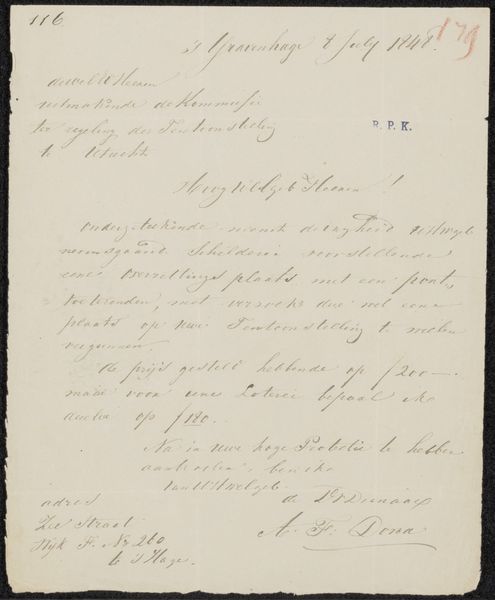 116.
179
's Gravenhage 8 July 1848.
de WelEd Heeren
uitmakende de Kommissie
ter regeling der Tentoonstelling
te Utrecht
R. P. K.
HoogWelgeb Heeren!
Ondergeteekende neemt de vrijheid UHWelgeb
nevensgaand Schilderij voorstellende
eene Overzettings plaats met een pont,
toetezenden, met verzoek die wel eene
plaats op uwe Tentoonstelling te willen
vergunnen.
de prijs gesteld hebbende op ƒ200—.
maar voor eene Loterei bepaal ik
dezelve op ƒ180..
Na in uwe hoge Protectie te hebben
aanbevolen, ben ik
van UHWelgeb.
de Dv Dienaar
A. F. Dona
adres
Zee Straat
Wijk F. No 260
te 's Hage.